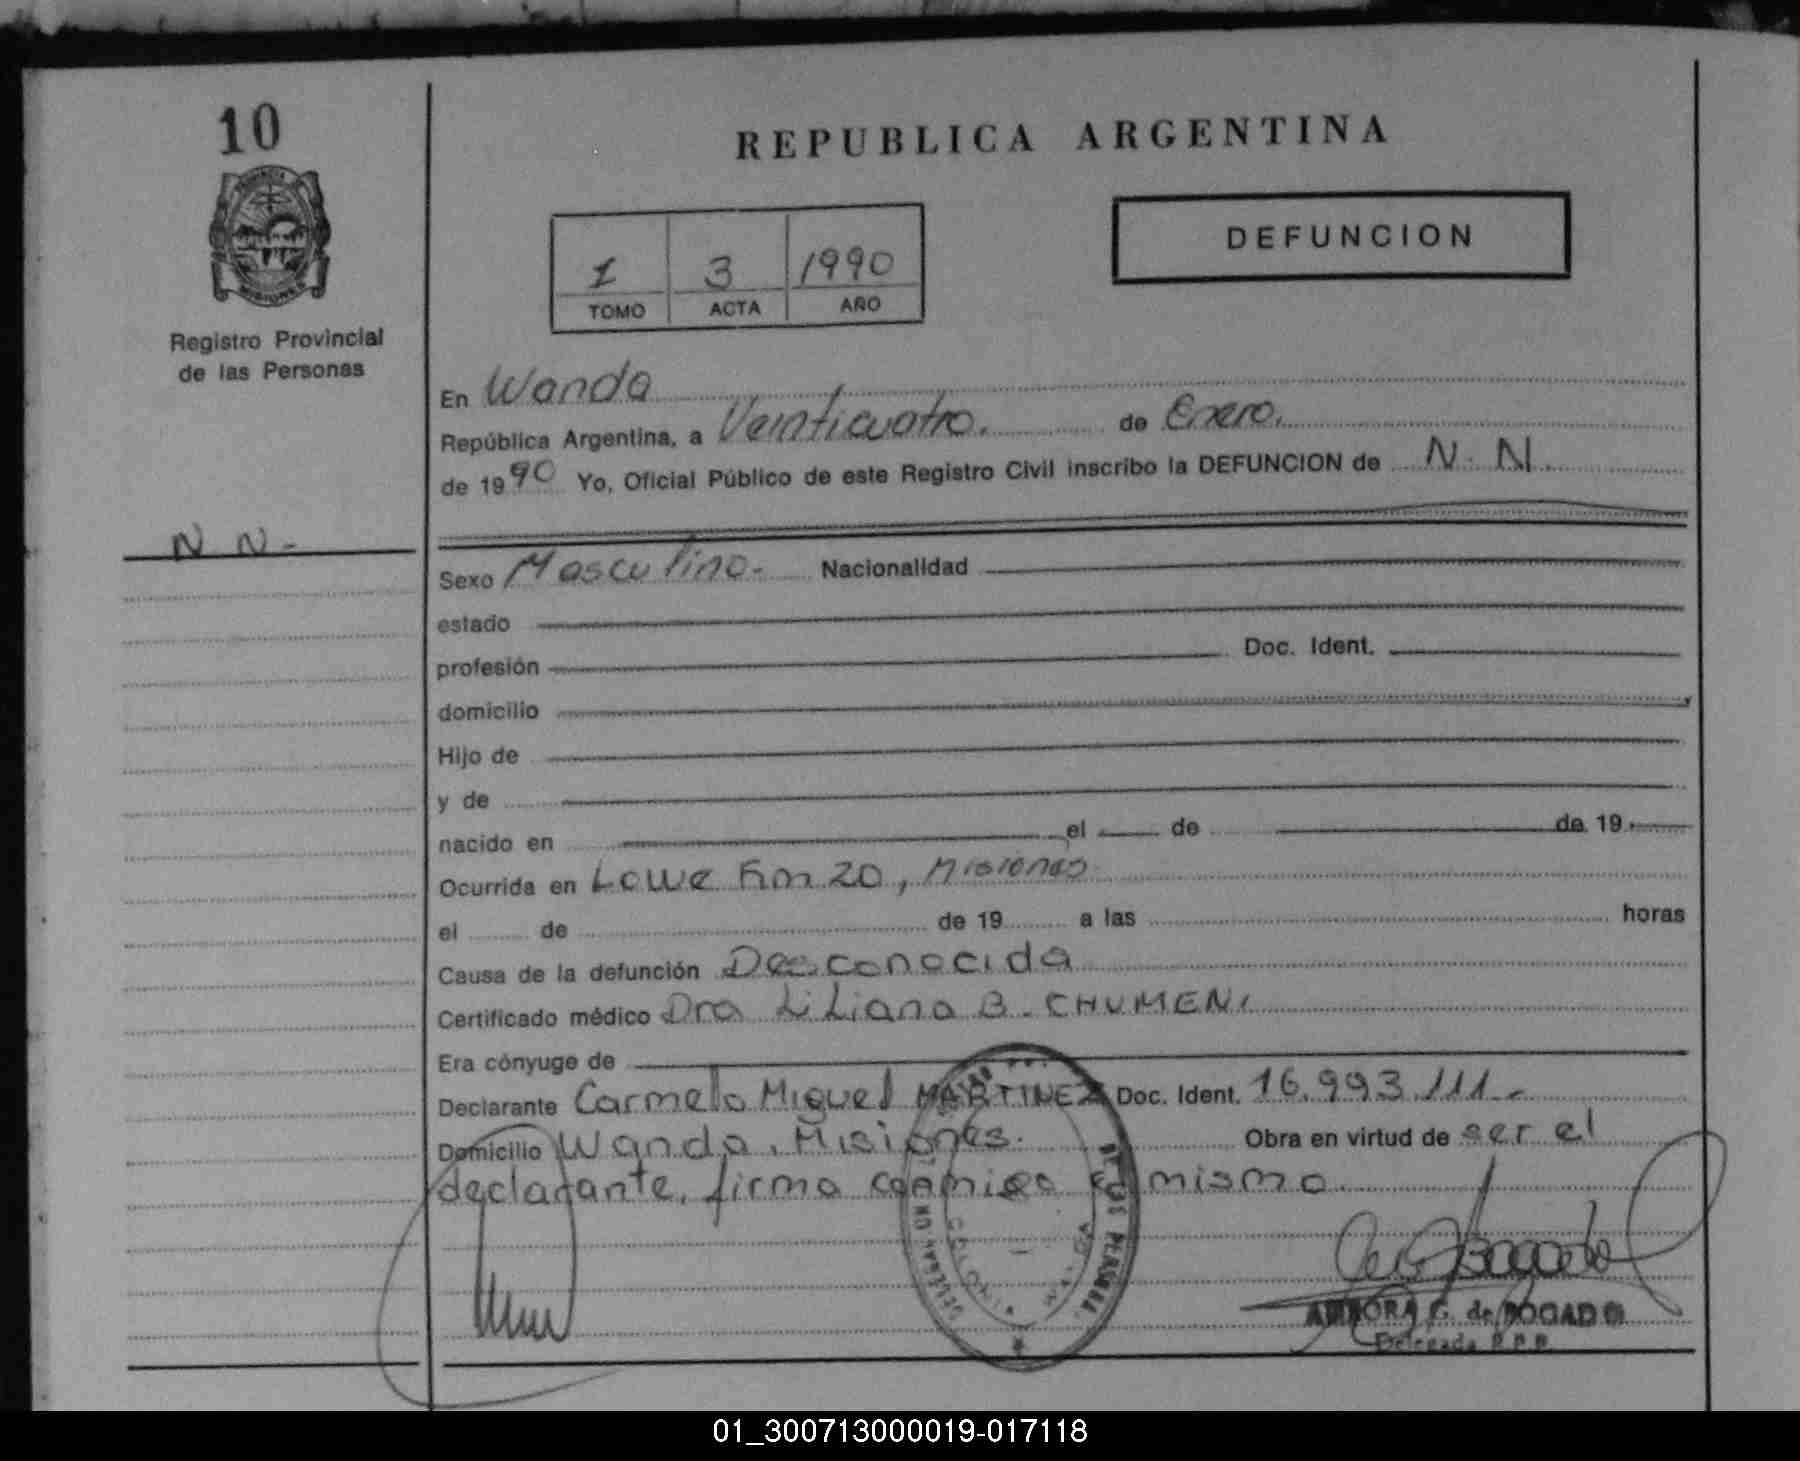 10
PROVINCIA DE
MISIONES
Registro Provincial
de las Personas
N N -
REPUBLICA ARGENTINA
1 3 1990
TOMO ACTA AÑO
DEFUNCION
En Wanda
República Argentina, a Veinticuatro. de Enero.
de 1990 Yo, Oficial Público de este Registro Civil inscribo la DEFUNCION de N. N.
Sexo Masculino. Nacionalidad
estado
profesión Doc. Ident.
domicilio
Hijo de
y de
nacido en el de de 19
Ocurrida en Km 20, Misiones
el de de 19 a las horas
Causa de la defunción Desconocida
Certificado médico Dra Liliana B. CHUMENI
Era cónyuge de
Declarante Carmelo Miguel MARTINEZ Doc. Ident. 16.993.111.-
Domicilio Wanda, Misiones. Obra en virtud de ser el
declarante, firma conmigo el mismo.
AURORA G. de BOGADO
Delegada R.P.P.
01_300713000019-017118